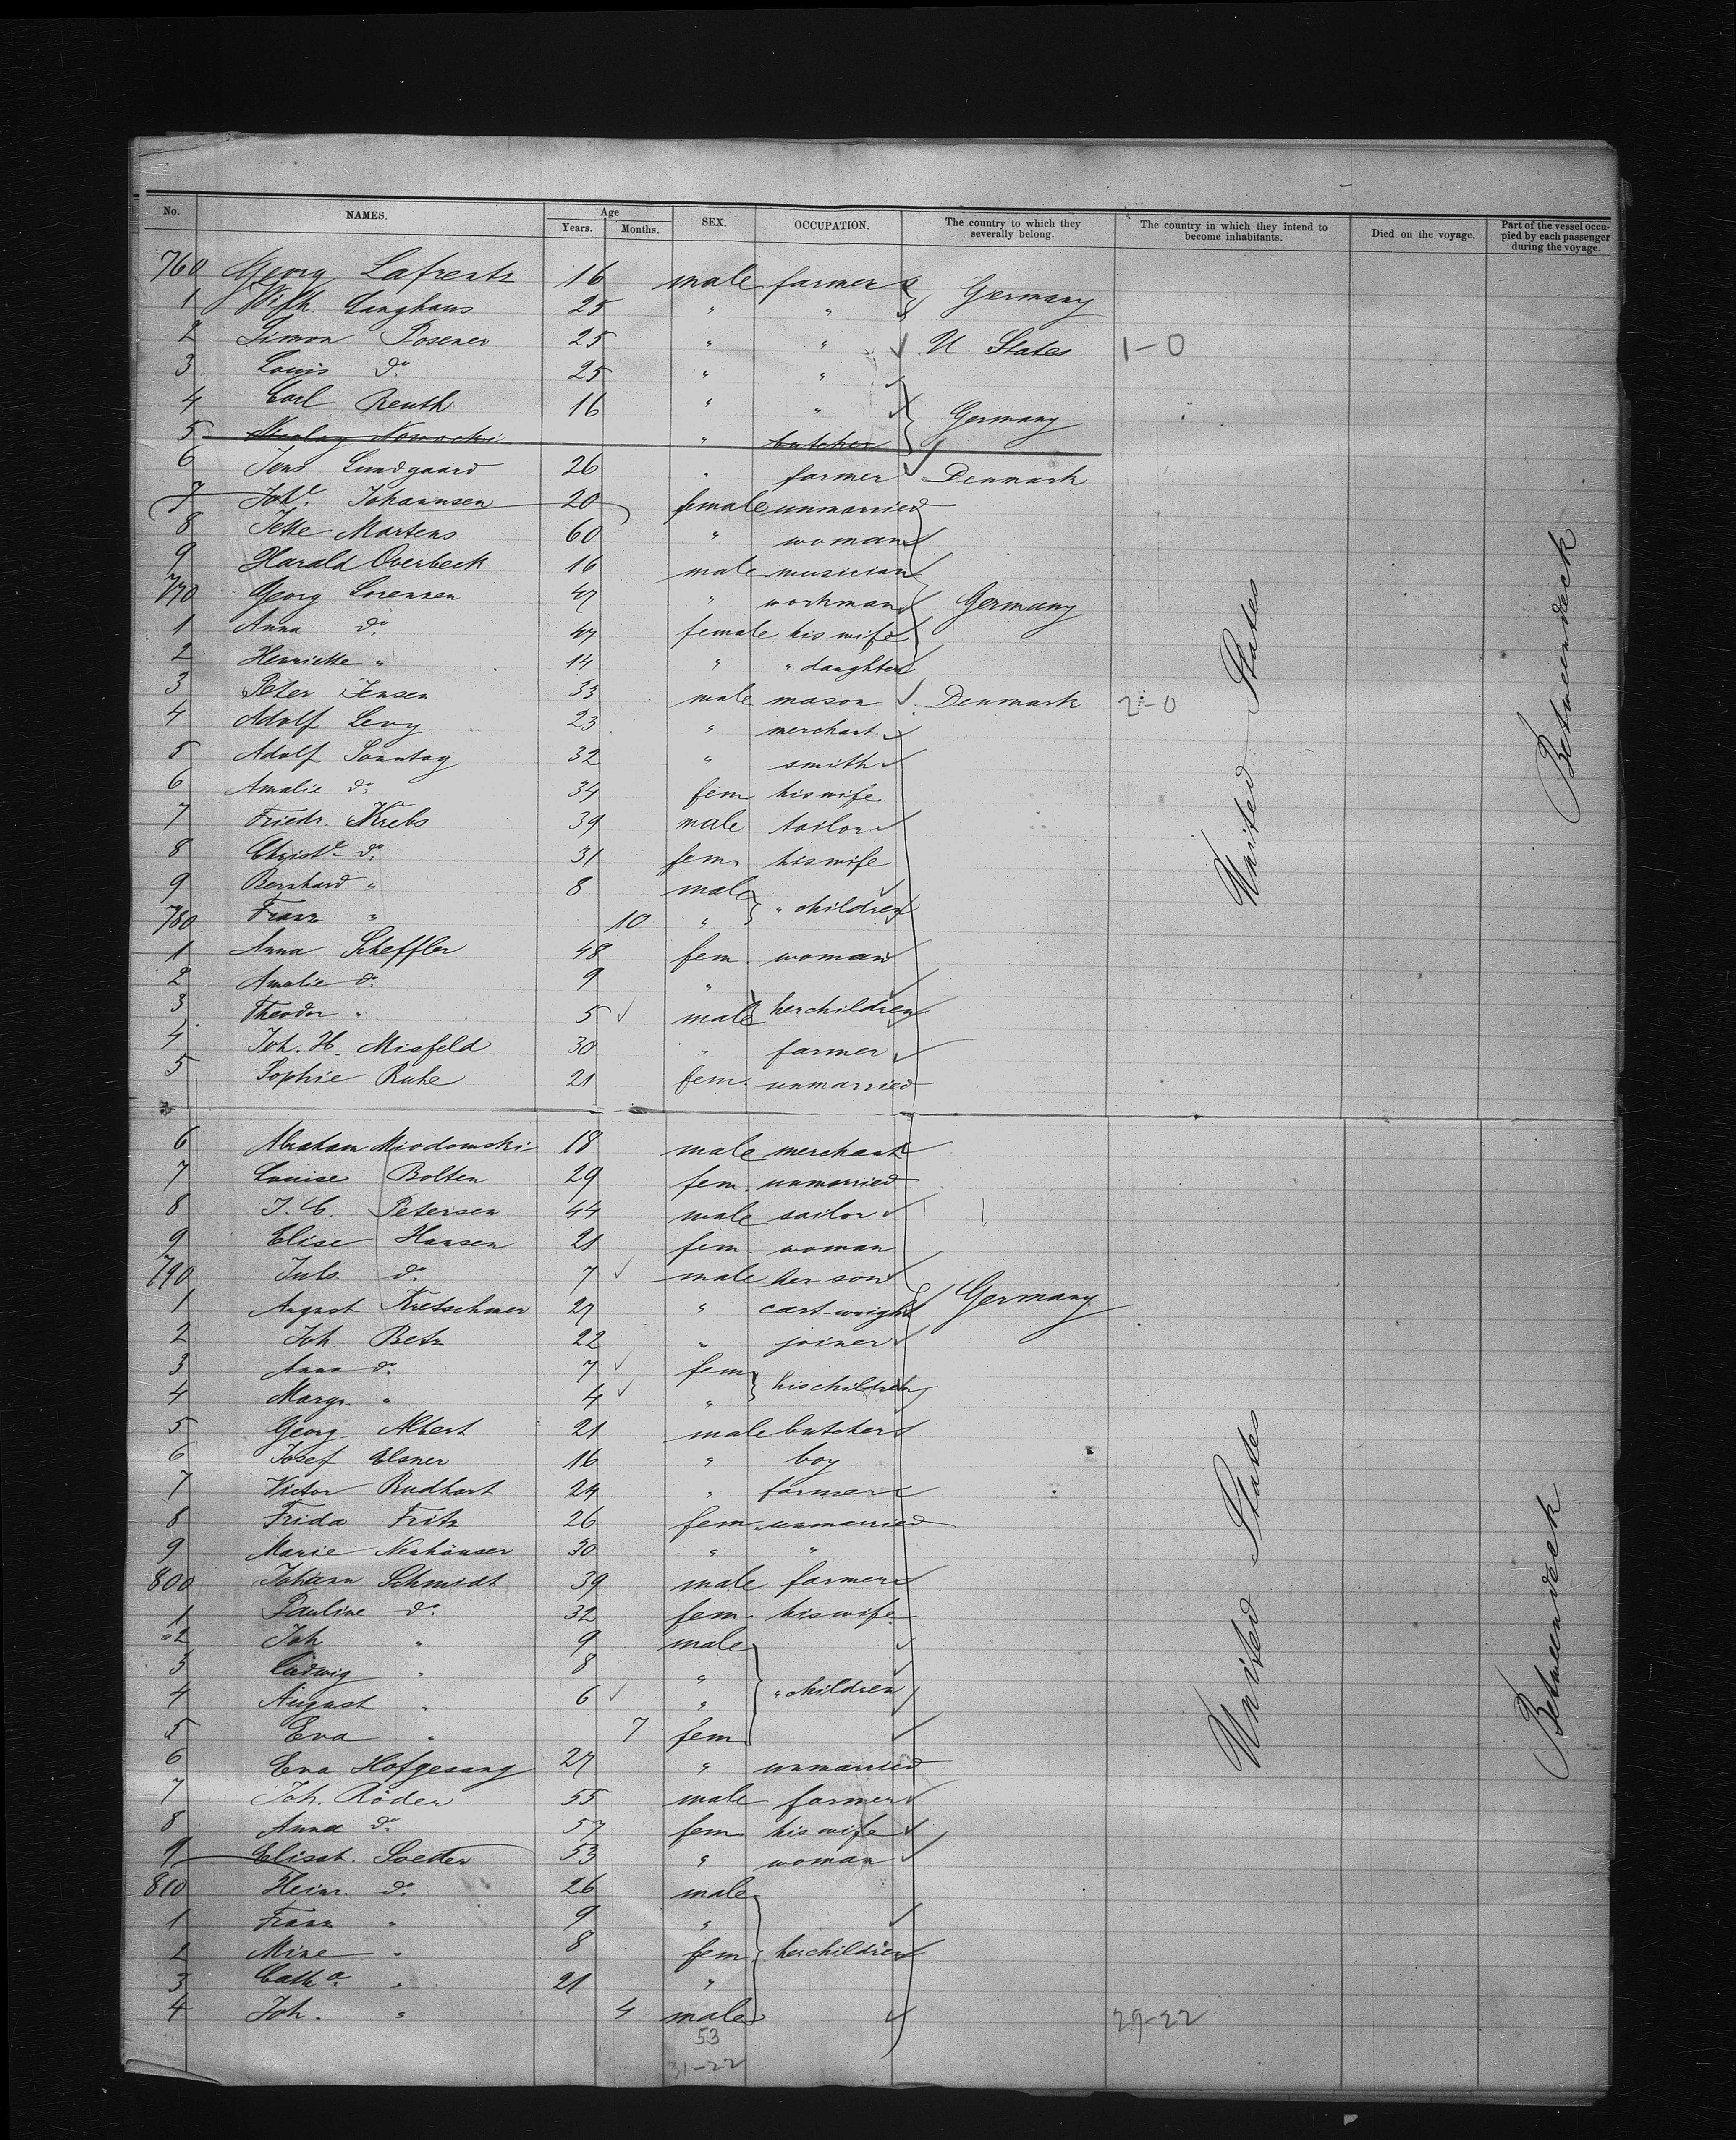 No. NAMES. Age Years. Months. SEX. OCCUPATION. The country to which they severally belong. The country in which they intend to become inhabitants. Died on the voyage. Part of the vessel occupied by each passenger during the voyage.
760 Georg Lafrentz 16 male farmer Germany
1 Wilh. Langhans 25 " "
2 Simon Posener 25 " " U. States 1-0
3 Louis do 25 " "
4 Carl Reuth 16 " " Germany
5 Nicolay Nowacki " butcher
6 Jens Lundgaard 26 " farmer Denmark
7 Johe Johannsen 20 female unmarried
8 Jette Martens 60 " woman
9 Harald Overbeck 16 male musician
770 Georg Lorenzen 47 " workman Germany
1 Anna do 47 female his wife
2 Henriette " 14 " " daughter
3 Peter Jensen 33 male mason Denmark 2-0
4 Adolf Levy 23 " merchant
5 Adolf Sonntag 32 " smith
6 Amalie do 34 fem his wife United States Betweendeck
7 Friedr. Krebs 39 male tailor
8 Christe do 31 fem. his wife
9 Bernhard " 8 male
780 Franz " 10 " " children
1 Anna Scheffler 48 fem. woman
2 Amalie do 9 "
3 Theodor " 5 male her children
4 Joh. H. Misfeld 30 " farmer
5 Sophie Ruhe 21 fem. unmarried
6 Abraham Miodowski 18 male merchant
7 Louise Bolten 29 fem. unmarried
8 J. C. Petersen 44 male sailor
9 Elise Hansen 21 fem. woman
790 Juls. do 7 male her son
1 August Kretschmer 27 " cart-wright Germany
2 Joh Betz 22 " joiner
3 Anna do 7 fem
4 Margr. " 4 " his children
5 Georg Albert 21 male butcher
6 Josef Elsner 16 " boy
7 Victor Rudhart 24 " farmer
8 Frida Fritz 26 fem. unmarried
9 Marie Neuhäuser 30 " "
800 Johann Schmidt 39 male farmer
1 Pauline do 32 fem. his wife United States Betweendeck
2 Joh " 9 male
3 Ludwig " 8 "
4 August " 6 " " children
5 Eva " 7 fem
6 Eva Hofgesang 27 " unmarried
7 Joh. Röder 55 male farmer
8 Anna do 57 fem his wife
9 Elisab. Soeder 53 " woman
810 Heinr. do 26 male
1 Franz " 9 "
2 Mine " 8 fem. her children
3 Catha " 21 "
4 Joh. " 4 male 29-22
53
31-22